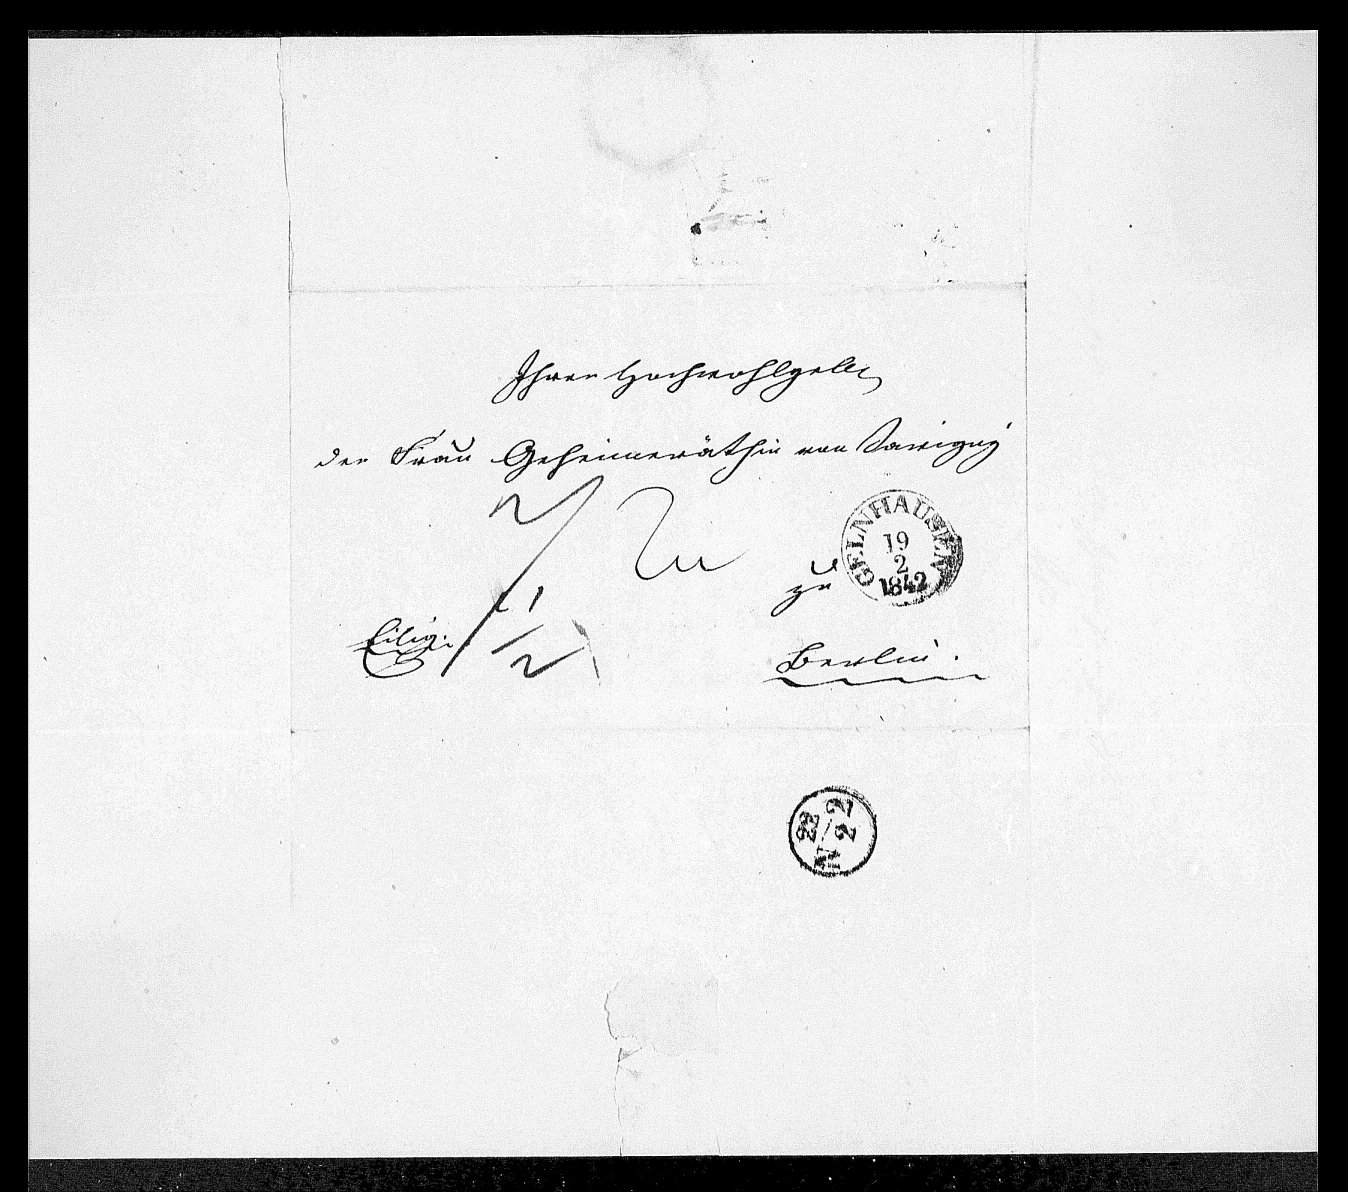 Ihrer Hochwohlgeb
der Frau Geheimeräthin von Savigny
GELNHAUSEN
19
2
1842
zu
Eilig.
Berlin.
N 22/2 2